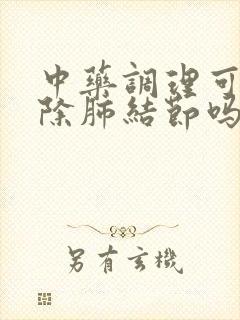 中藥調理可
除肺結節吗
另有玄機